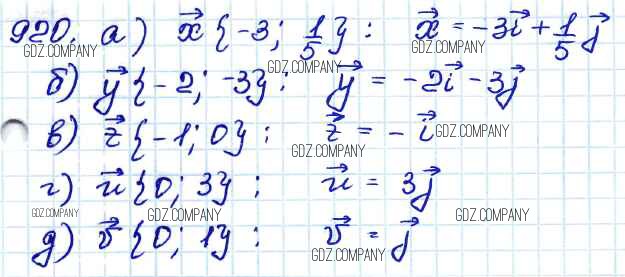 920. а) x⃗ {-3; 1/5} : x⃗ = -3i⃗ + 1/5 j⃗
GDZ.COMPANY GDZ.COMPANY GDZ.COMPANY
б) y⃗ {-2; -3} : y⃗ = -2i⃗ - 3j⃗
в) z⃗ {-1; 0} : z⃗ = -i⃗ GDZ.COMPANY
GDZ.COMPANY
г) u⃗ {0; 3} : u⃗ = 3j⃗
GDZ.COMPANY GDZ.COMPANY GDZ.COMPANY
д) v⃗ {0; 1} : v⃗ = j⃗
GDZ.COMPANY GDZ.COMPANY